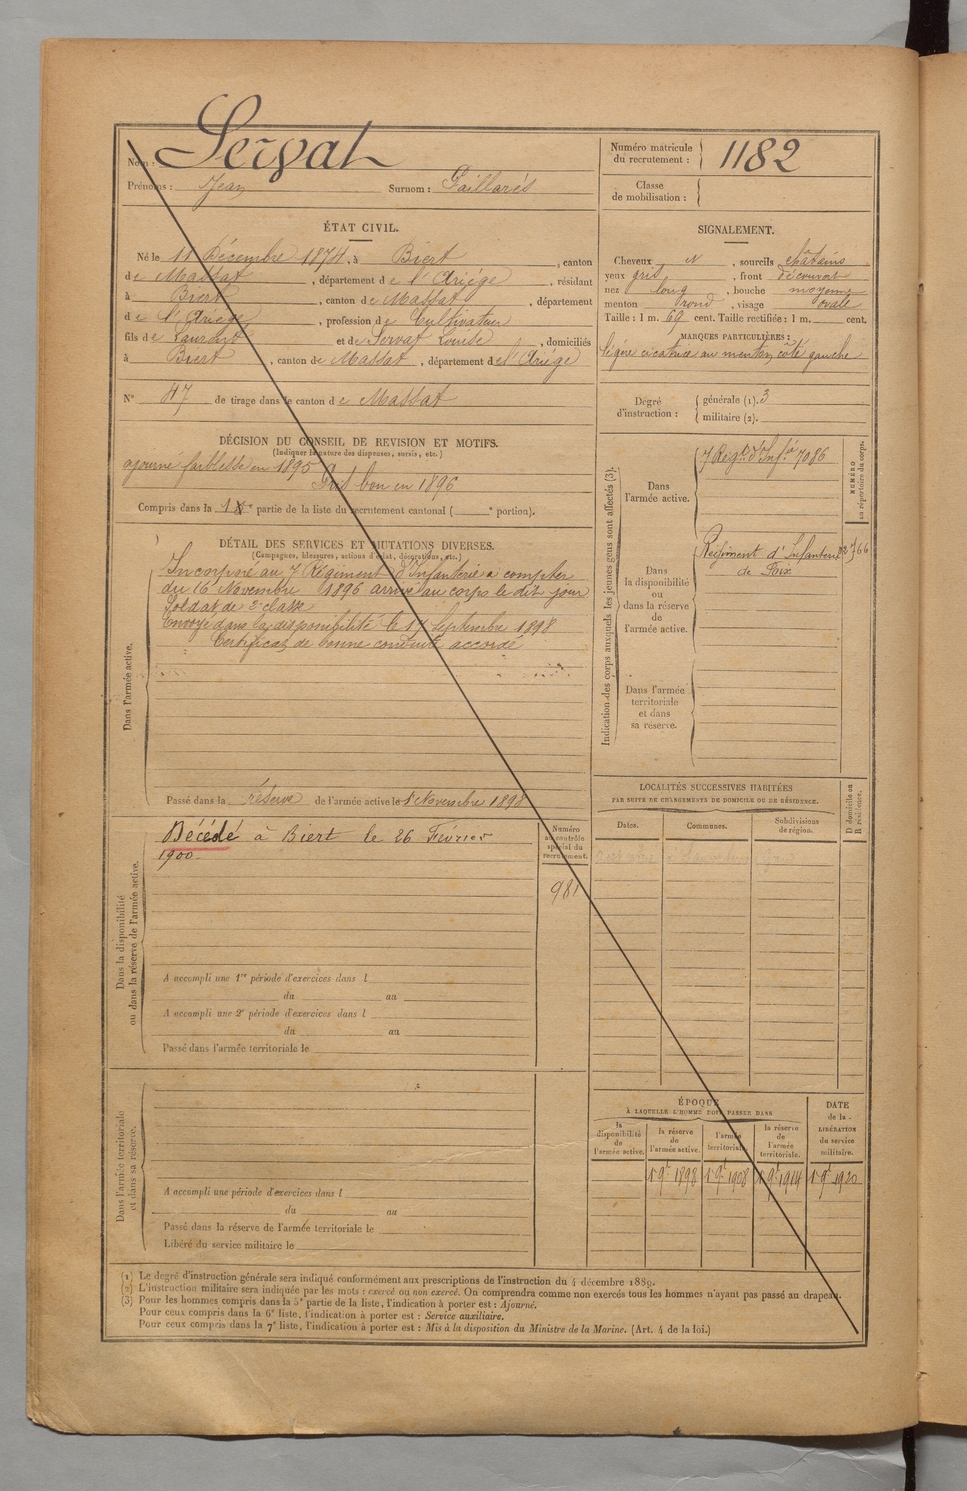 Nom : Servat
Prénoms : Jean Surnom : Gaillarés
Numéro matricule du recrutement : 1182
Classe de mobilisation :
ÉTAT CIVIL.
Né le 11 Décembre 1874, à Biert, canton
de Massat, département de l'Ariége, résidant
à Biert, canton de Massat, département
de l'Ariége, profession de Cultivateur
fils de Laurent et de Servat Louise, domiciliés
à Biert, canton de Massat, département de l'Ariége
N° 47 de tirage dans le canton de Massat
SIGNALEMENT.
Cheveux N, sourcils châtains
yeux gris, front découvert
nez long, bouche moyenne
menton rond, visage ovale
Taille : 1 m. 69 cent. Taille rectifiée : 1 m. cent.
MARQUES PARTICULIÈRES :
légère cicatrice au menton, côté gauche
Degré d'instruction : générale (1). 3
militaire (2).
DÉCISION DU CONSEIL DE REVISION ET MOTIFS.
(Indiquer la nature des dispenses, sursis, etc.)
ajourné faiblesse en 1895
bon en 1896
Compris dans la 1e partie de la liste du recrutement cantonal ( e portion).
DÉTAIL DES SERVICES ET MUTATIONS DIVERSES.
(Campagnes, blessures, actions d'éclat, décorations, etc.)
Dans l'armée active.
Incorporé au 7 Régiment d'Infanterie à compter
du 16 Novembre 1896 arrivé au corps le dit jour
Soldat de 2e classe
Envoyé dans la disponibilité le 17 Septembre 1898
Certificat de bonne conduite accordé
Passé dans la réserve de l'armée active le 1 Novembre 1898
Indication des corps auxquels les jeunes gens sont affectés (3).
NUMÉRO au répertoire du corps.
Dans l'armée active.
7 Régt d'Infie 7086
Dans la disponibilité ou dans la réserve de l'armée active.
Régiment d'Infanterie
de Foix
Dans l'armée territoriale et dans sa réserve.
LOCALITÉS SUCCESSIVES HABITÉES
PAR SUITE DE CHANGEMENTS DE DOMICILE OU DE RÉSIDENCE.
D domicile ou R résidence.
Dates. Communes. Subdivisions de région.
Dans la disponibilité ou dans la réserve de l'armée active.
Décédé à Biert le 26 Février
1900
Numéro au contrôle spécial du recrutement.
981
A accompli une 1re période d'exercices dans l
du au
A accompli une 2e période d'exercices dans l
du au
Passé dans l'armée territoriale le
Dans l'armée territoriale et dans sa réserve.
A accompli une période d'exercices dans l
du au
Passé dans la réserve de l'armée territoriale le
Libéré du service militaire le
ÉPOQUE
À LAQUELLE L'HOMME DOIT PASSER DANS
DATE de la LIBÉRATION du service militaire.
la disponibilité de l'armée active.
la réserve de l'armée active.
l'armée territoriale.
la réserve de l'armée territoriale.
1 9e 1898 1 9e 1908 1 9e 1914 1 9e 1920
(1) Le degré d'instruction générale sera indiqué conformément aux prescriptions de l'instruction du 4 décembre 1889.
(2) L'instruction militaire sera indiquée par les mots : exercé ou non exercé. On comprendra comme non exercés tous les hommes n'ayant pas passé au drapeau.
(3) Pour les hommes compris dans la 5e partie de la liste, l'indication à porter est : Ajourné.
Pour ceux compris dans la 6e liste, l'indication à porter est : Service auxiliaire.
Pour ceux compris dans la 7e liste, l'indication à porter est : Mis à la disposition du Ministre de la Marine. (Art. 4 de la loi.)